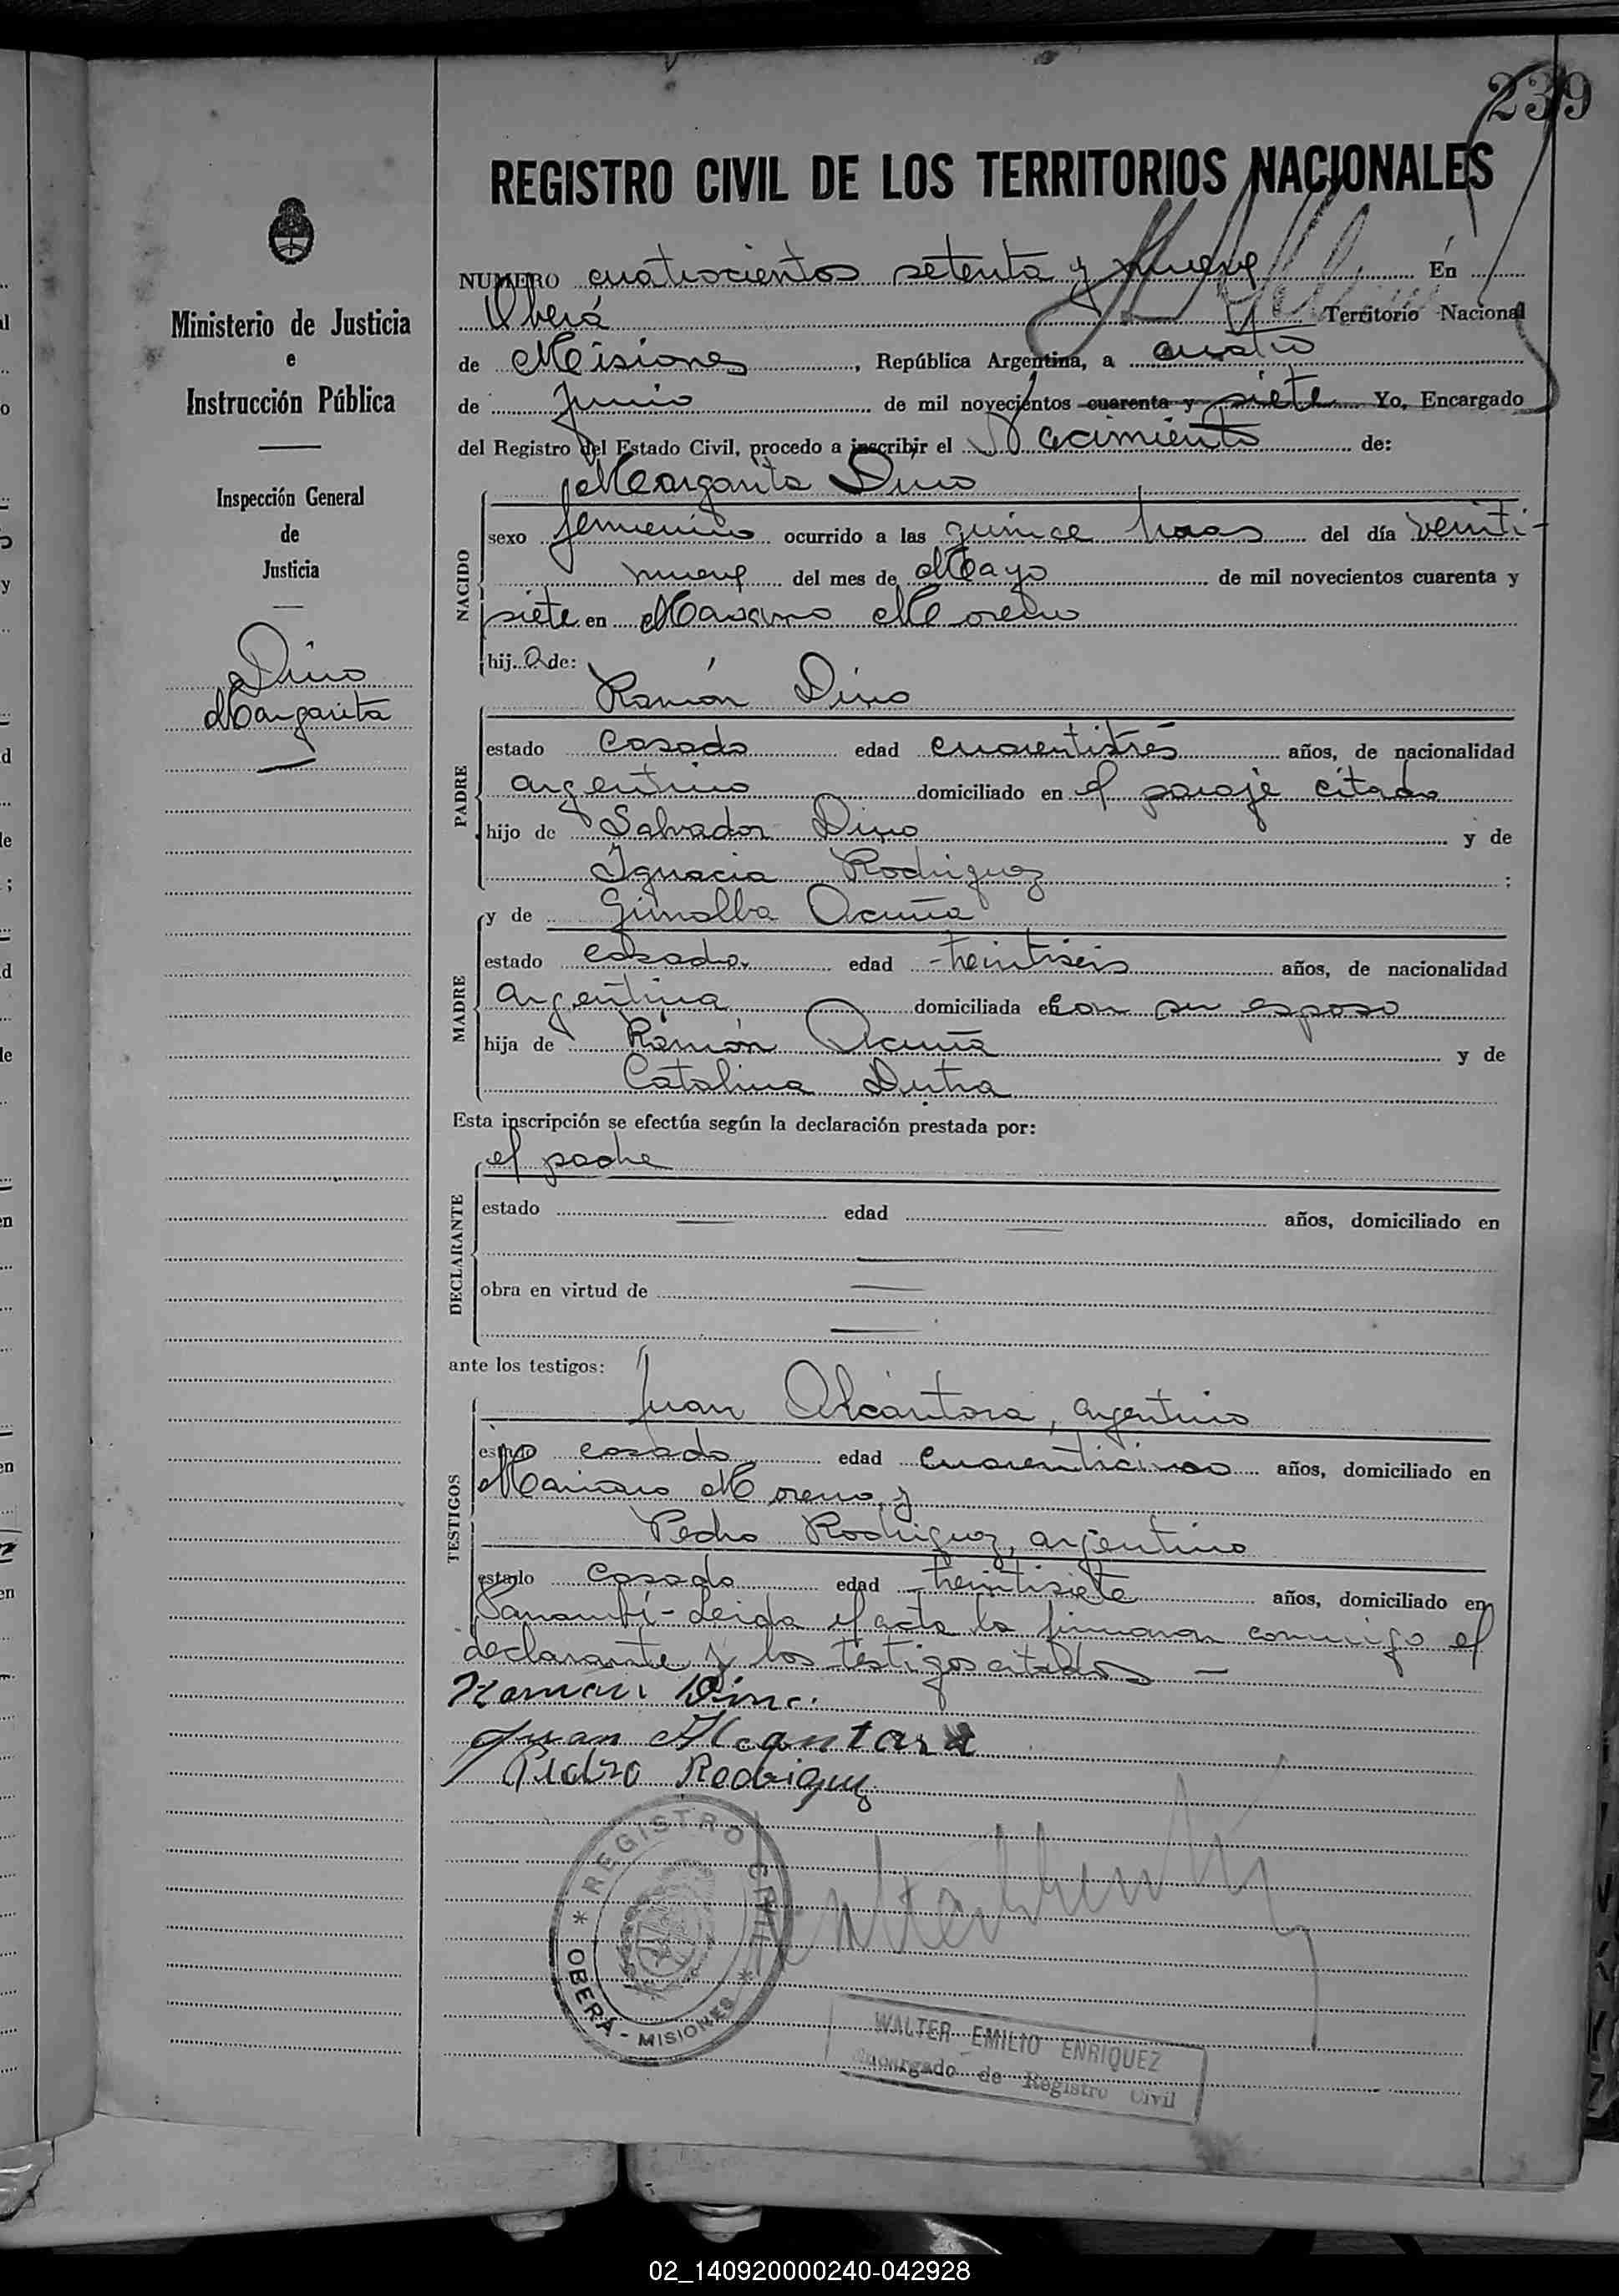 239
REGISTRO CIVIL DE LOS TERRITORIOS NACIONALES
Ministerio de Justicia
e
Instrucción Pública
Inspección General
de
Justicia
Dino
Margarita
NUMERO cuatrocientos setenta y nueve En
Oberá Territorio Nacional
de Misiones, República Argentina, a cuatro
de Junio de mil novecientos cuarenta y siete Yo, Encargado
del Registro del Estado Civil, procedo a inscribir el Nacimiento de:
Margarita Dino
NACIDO
sexo femenino ocurrido a las quince horas del día veinti-
nueve del mes de Mayo de mil novecientos cuarenta y
siete en Mariano Moreno
hija de:
Ramón Dino
PADRE
estado casado edad cuarentitrés años, de nacionalidad
argentino domiciliado en el paraje citado
hijo de Salvador Dino y de
Ignacia Rodriguez;
y de Acuña
MADRE
estado casada edad treintiseis años, de nacionalidad
argentina domiciliada con su esposo
hija de Ramón Acuña y de
Catalina Dutra
Esta inscripción se efectúa según la declaración prestada por:
el padre
DECLARANTE
estado edad años, domiciliado en
obra en virtud de
ante los testigos:
Juan Alcantara, argentino
TESTIGOS
estado casado edad cuarenticinco años, domiciliado en
Mariano Moreno, y
Pedro Rodriguez, argentino
estado casado edad treintisiete años, domiciliado en
Panambí - Leida el acta la firmaron conmigo el
declarante y los testigos citados -
Ramon Dino.
Juan Alcantara
Pedro Rodriguez
REGISTRO CIVIL
OBERÁ - MISIONES
WALTER EMILIO ENRIQUEZ
Encargado de Registro Civil
02_140920000240-042928